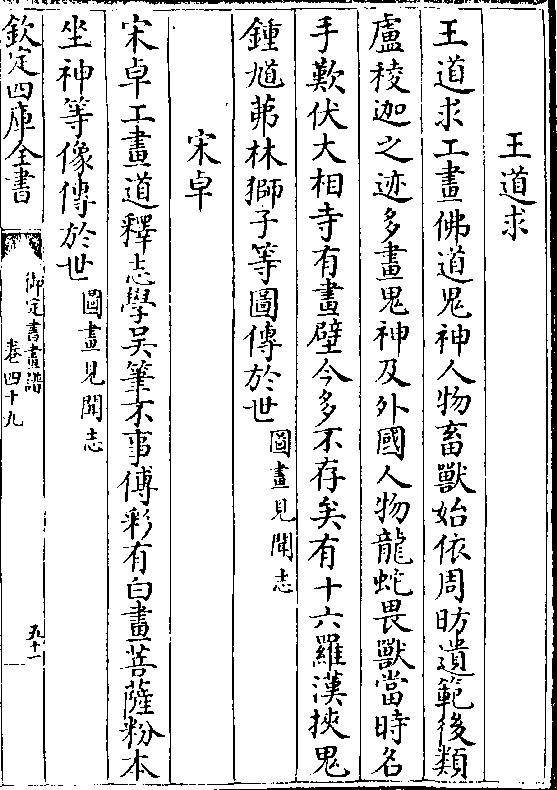 王道求
王道求工畫佛道鬼神人物畜獸始依周昉遺範後類
盧稜迦之迹多畫鬼神及外國人物龍蛇畏獸當時名
手歎伏大相寺有畫壁今多不存矣有十六羅漢挾鬼
鍾馗茀林獅子等圖傳於世圖畫見聞志
宋卓
宋卓工畫道釋志學吳筆不事傅彩有白畫菩薩粉本
坐神等像傳於世圖畫見聞志
欽定四庫全書
御定書畫譜
卷四十九
五十一